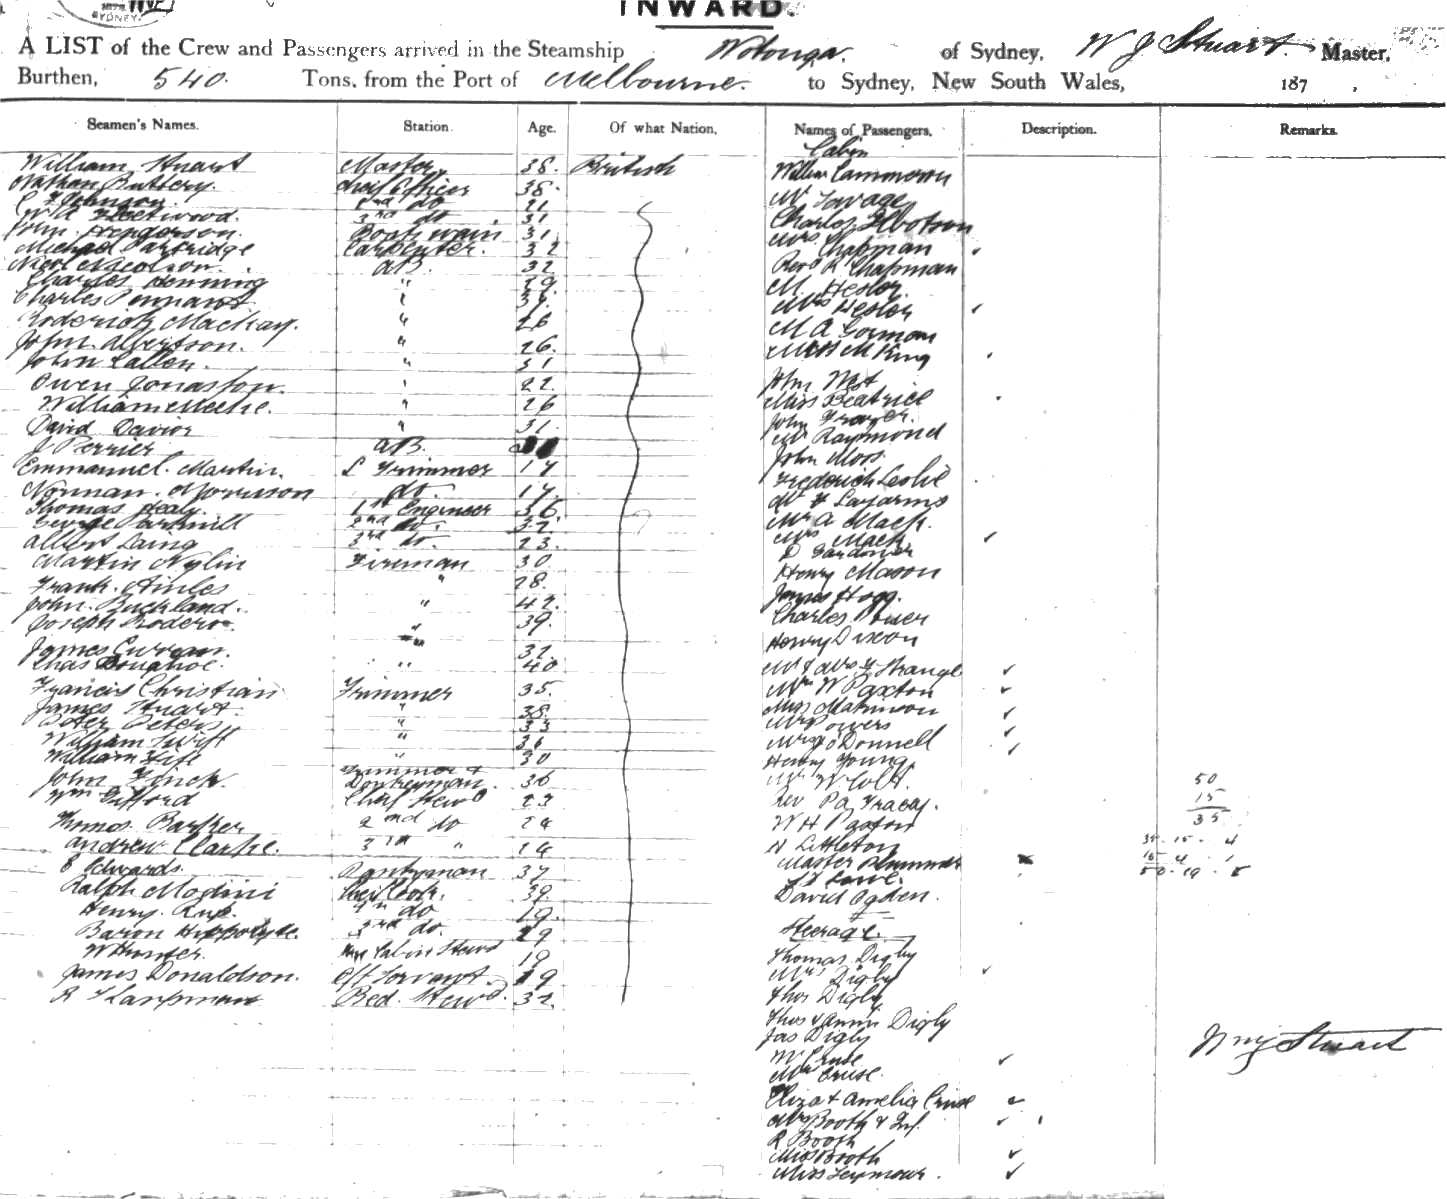 SYDNEY
INWARD.
A LIST of the Crew and Passengers arrived in the Steamship Wotonga. of Sydney, W J Stuart Master,
Burthen, 540. Tons, from the Port of Melbourne. to Sydney, New South Wales, 187 ,
Seamen's Names. Station. Age. Of what Nation. Names of Passengers. Description. Remarks.
Cabin
William Stuart Master 38. British
Nathan Buttery. Chief Officer 38.
Johnson. 2nd do 21
Fleetwood. 3rd do 31
John Henderson. Boatswain 31
Michael Partridge Carpenter. 32
AB. 32
Charles Henning " 29
Charles Pennant "
Roderick Mackay. " 26
John Albertson. " 26.
John "
Owen Jonasson. "
William " 26
David Davies " 31.
J Perrier AB.
Emmanuel Martin. Trimmer 17
Norman Morrison do. 17.
Thomas Healy. 1st Engineer 36
George 2nd do. 32.
Albert Laing 3rd do. 23.
Martin Nylin Fireman 30
Frank " 28.
John Buckland. " 42.
Joseph " 39.
James Curran. " 32
Chas Donahoe " 40
Francis Christian Trimmer 35.
James Stuart " 38
Peter Peters " 33
William Swift "
William Fife " 30
John Finch Trimmer & Donkeyman. 36
Wm Gifford Chief Stewd 23
Thomas Barker 2nd do 24
Andrew Clarke. 3rd " 14
E Edwards Pantryman 37
Ralph Modini Chef Cook. 39.
Henry 2nd do 19.
Baron Hippolyte. 3rd do. 29
W Hunter. Cabin Stewd 19
James Donaldson. Off Servant. 19
R Bed. Stewd. 32.
William Cammeron
Mr Savage
Charles
Mrs Chapman
Revd R Chapman
M. Hesler.
Mrs Hesler
M A Gorman
Miss M King
John West
Miss Beatrice
John Frazer.
Mr Raymond
John Moss
Frederick Leslie
Mr Lazarus
Mr A Mack.
Mrs Mack
D Gardiner
Henry Mason
James Hogg.
Charles Power
Henry Dixon
Mr & Mrs Strange
Mrs W Paxton
Miss
Mrs Powers
Mrs O'Donnell
Henry Young
Mr W Colt.
Rev Pa Tracey.
W H Paxton
N Littleton
Master Plummer
Lowe.
David Ogden.
Steerage.
Thomas Digby
Mrs Digby
Thos Digby
Thos & Annie Digby
Jas Digby
Mr Cruse
Mrs Cruse.
Eliza & Amelia Cruse
Mrs Booth & Inf.
R Booth
Miss Booth
Miss Seymour.
50
15
35
35 . 15 . 4
50 . 19 . 5
Wm J Stuart